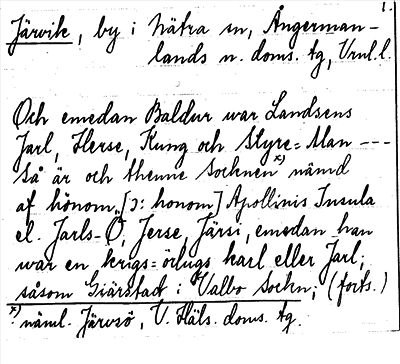 1.
Järvik, by i Nätra sn, Ångerman-
lands n. doms. tg, Vnl.l.
Och emedan Baldur war Landsens
Jarl, Herse, Kung och Styre=Man ---
Så är och thenne Sochnen x) nämd
af hönom, [ɔ: honom] Apollinis Insula
el. Jarls-Ö, Jerse, Järsi, emedan han
war en krigs=örlugs karl eller Jarl;
såsom Giärstad i Valbo Sochn; (forts.)
x) näml. Järvsö, V. Häls. doms. tg.